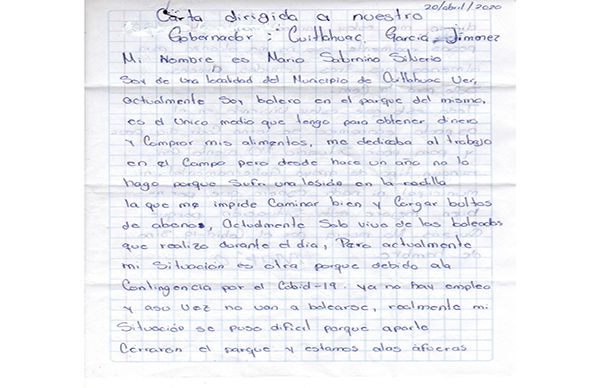 20/abril/2020
Carta dirigida a nuestro
Gobernador: Cuitláhuac, García, Jimenez
Mi Nombre es Mario Saturnino Silverio
Soy de una localidad del Municipio de Cuitlahuac Ver,
actualmente Soy bolero en el parque del mismo,
es el Unico medio que tengo para obtener dinero
y Comprar mis alimentos, me dedicaba al trabajo
en el Campo pero desde hace un año no lo
hago porque Sufri una lesión en la rodilla
la que me impide Caminar bien y Cargar bultos
de abono, Actudmente Sob vivo de las boleadas
que realizo durante el día, Pero actualmente
mi Situación es otra porque debido ala
Contingencia por el Cobid-19. ya no hay empleo
y asu vez no van a bolearse, realmente mi
Situación se puso dificil porque aparte
Cerraron el parque y estamos alas afueras